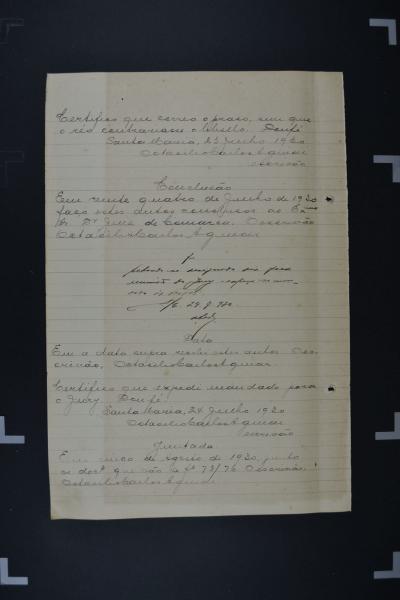 Certifico que correo o praso, sem que
o reo contrariasse o libello. Dou fé.
Santa Maria, 23 Junho 1920
Octacilio Carlos Aguiar
escrivão
Conclusão
Em vinte quatro de Junho de 1920
faço estes autos conclusos ao Exmo
Sr. Dr Juiz de Comarca. O escrivão
Octacilio Carlos Aguiar
para
do jury
Data
Em a data supra recebi estes autos. O es-
crivão, Octacilio Carlos Aguiar.
Certifico que expedi mandado para
o Jury. Dou fé.
Santa Maria, 24 Junho 1920
Octacilio Carlos Aguiar
escrivão
Juntada
Em cinco de agosto de 1920, junto
os docs que vão a fs 73/76. O escrivão,
Octacilio Carlos Aguiar